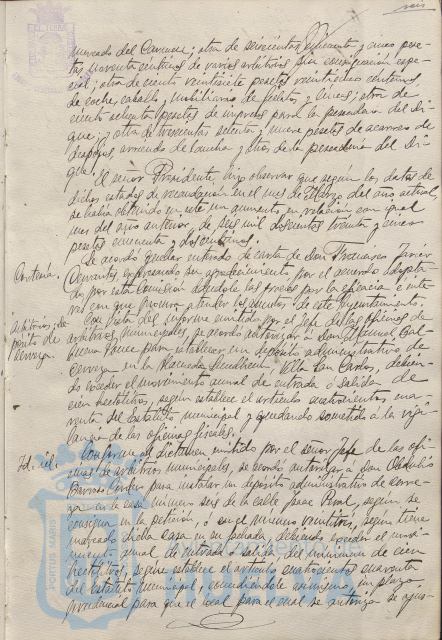 seis
mercado del Carmen; otra de seiscientas cincuenta y cinco pese-
tas noventa céntimos de varios arbitrios sin consignación espe-
cial; otra de ciento veintisiete pesetas veinticinco céntimos
de coche, caballo, mobiliario de fielatos y líneas; otra de
ciento sesenta pesetas de impresos para la pescadería del Di-
que; y otra de trescientas setenta y nueve pesetas de acarreo de
despojos, arriendo de lancha y otros de la pescadería del Di-
que.
El señor Presidente hizo observar que según los datos de
dichos estados de recaudación en el mes de Marzo del año actual,
se había obtenido en este un aumento en relación con igual
mes del año anterior de seis mil doscientos treinta y cinco
pesetas cuarenta y dos céntimos.
Cortesía.
Se acordó quedar enterado de carta de Don Francisco Javier
Cervantes expresando su agradecimiento por el acuerdo adopta-
do por esta Comisión dándole las gracias por la eficacia e inte-
rés con que procura atender los asuntos de este Ayuntamiento.
Arbitrios; de-
pósito de
cerveza.
Con vista del informe emitido por el Jefe de las oficinas de
arbitrios municipales, se acordó autorizar a Don Manuel Bal-
buena Ponce para establecer un depósito administrativo de
cerveza en la Alameda Moret, Villa San Carlos, debien-
do exceder el movimiento anual de entrada o salida de
cien hectolitros, según establece el artículo cuatrocientos cua-
renta del Estatuto municipal y quedando sometido a la vigi-
lancia de las oficinas fiscales.
Id. id.
Conforme al dictamen emitido por el señor Jefe de las ofi-
cinas de arbitrios municipales, se acordó autorizar a Don
Barros para instalar un depósito administrativo de cerve-
za en la casa número seis de la calle Isaac Peral, según se
consigna en la petición, o en el número veintitres, según tiene
marcado dicha casa en su fachada, debiendo exceder el movi-
miento anual de entrada o salida del mínimum de cien
hectolitros, según establece el artículo cuatrocientos cuarenta
del Estatuto municipal, concediéndole asimismo, un plazo
prudencial para que el local para el cual se autoriza se ajus-
PORTUS MARIS